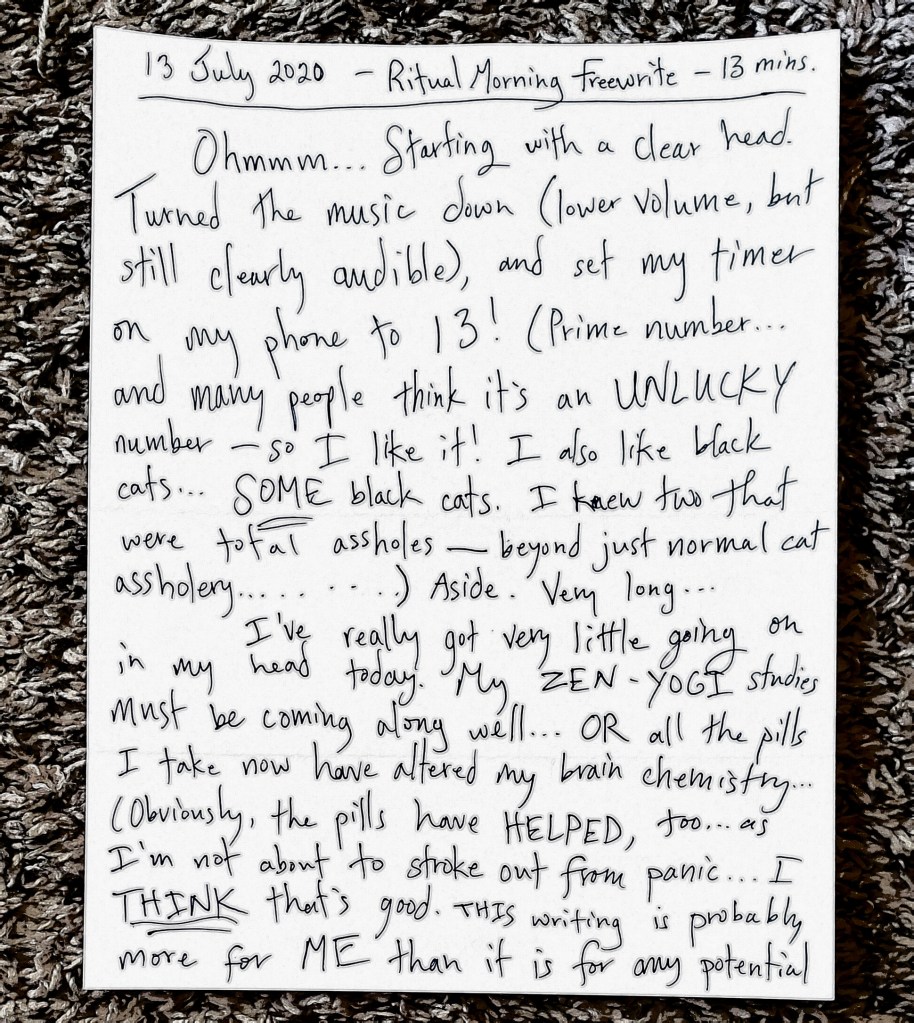 13 July 2020 - Ritual Morning Freewrite - 13 mins.
Ohmmm... Starting with a clear head.
Turned the music down (lower volume, but
still clearly audible), and set my timer
on my phone to 13! (Prime number...
and many people think it's an UNLUCKY
number - so I like it! I also like black
cats... SOME black cats. I knew two that
were total assholes — beyond just normal cat
assholery..... ....) Aside. Very long...
I've really got very little going on
in my head today. My ZEN-YOGI studies
must be coming along well... OR all the pills
I take now have altered my brain chemistry...
(Obviously, the pills have HELPED, too... as
I'm not about to stroke out from panic... I
THINK that's good. THIS writing is probably
more for ME than it is for any potential